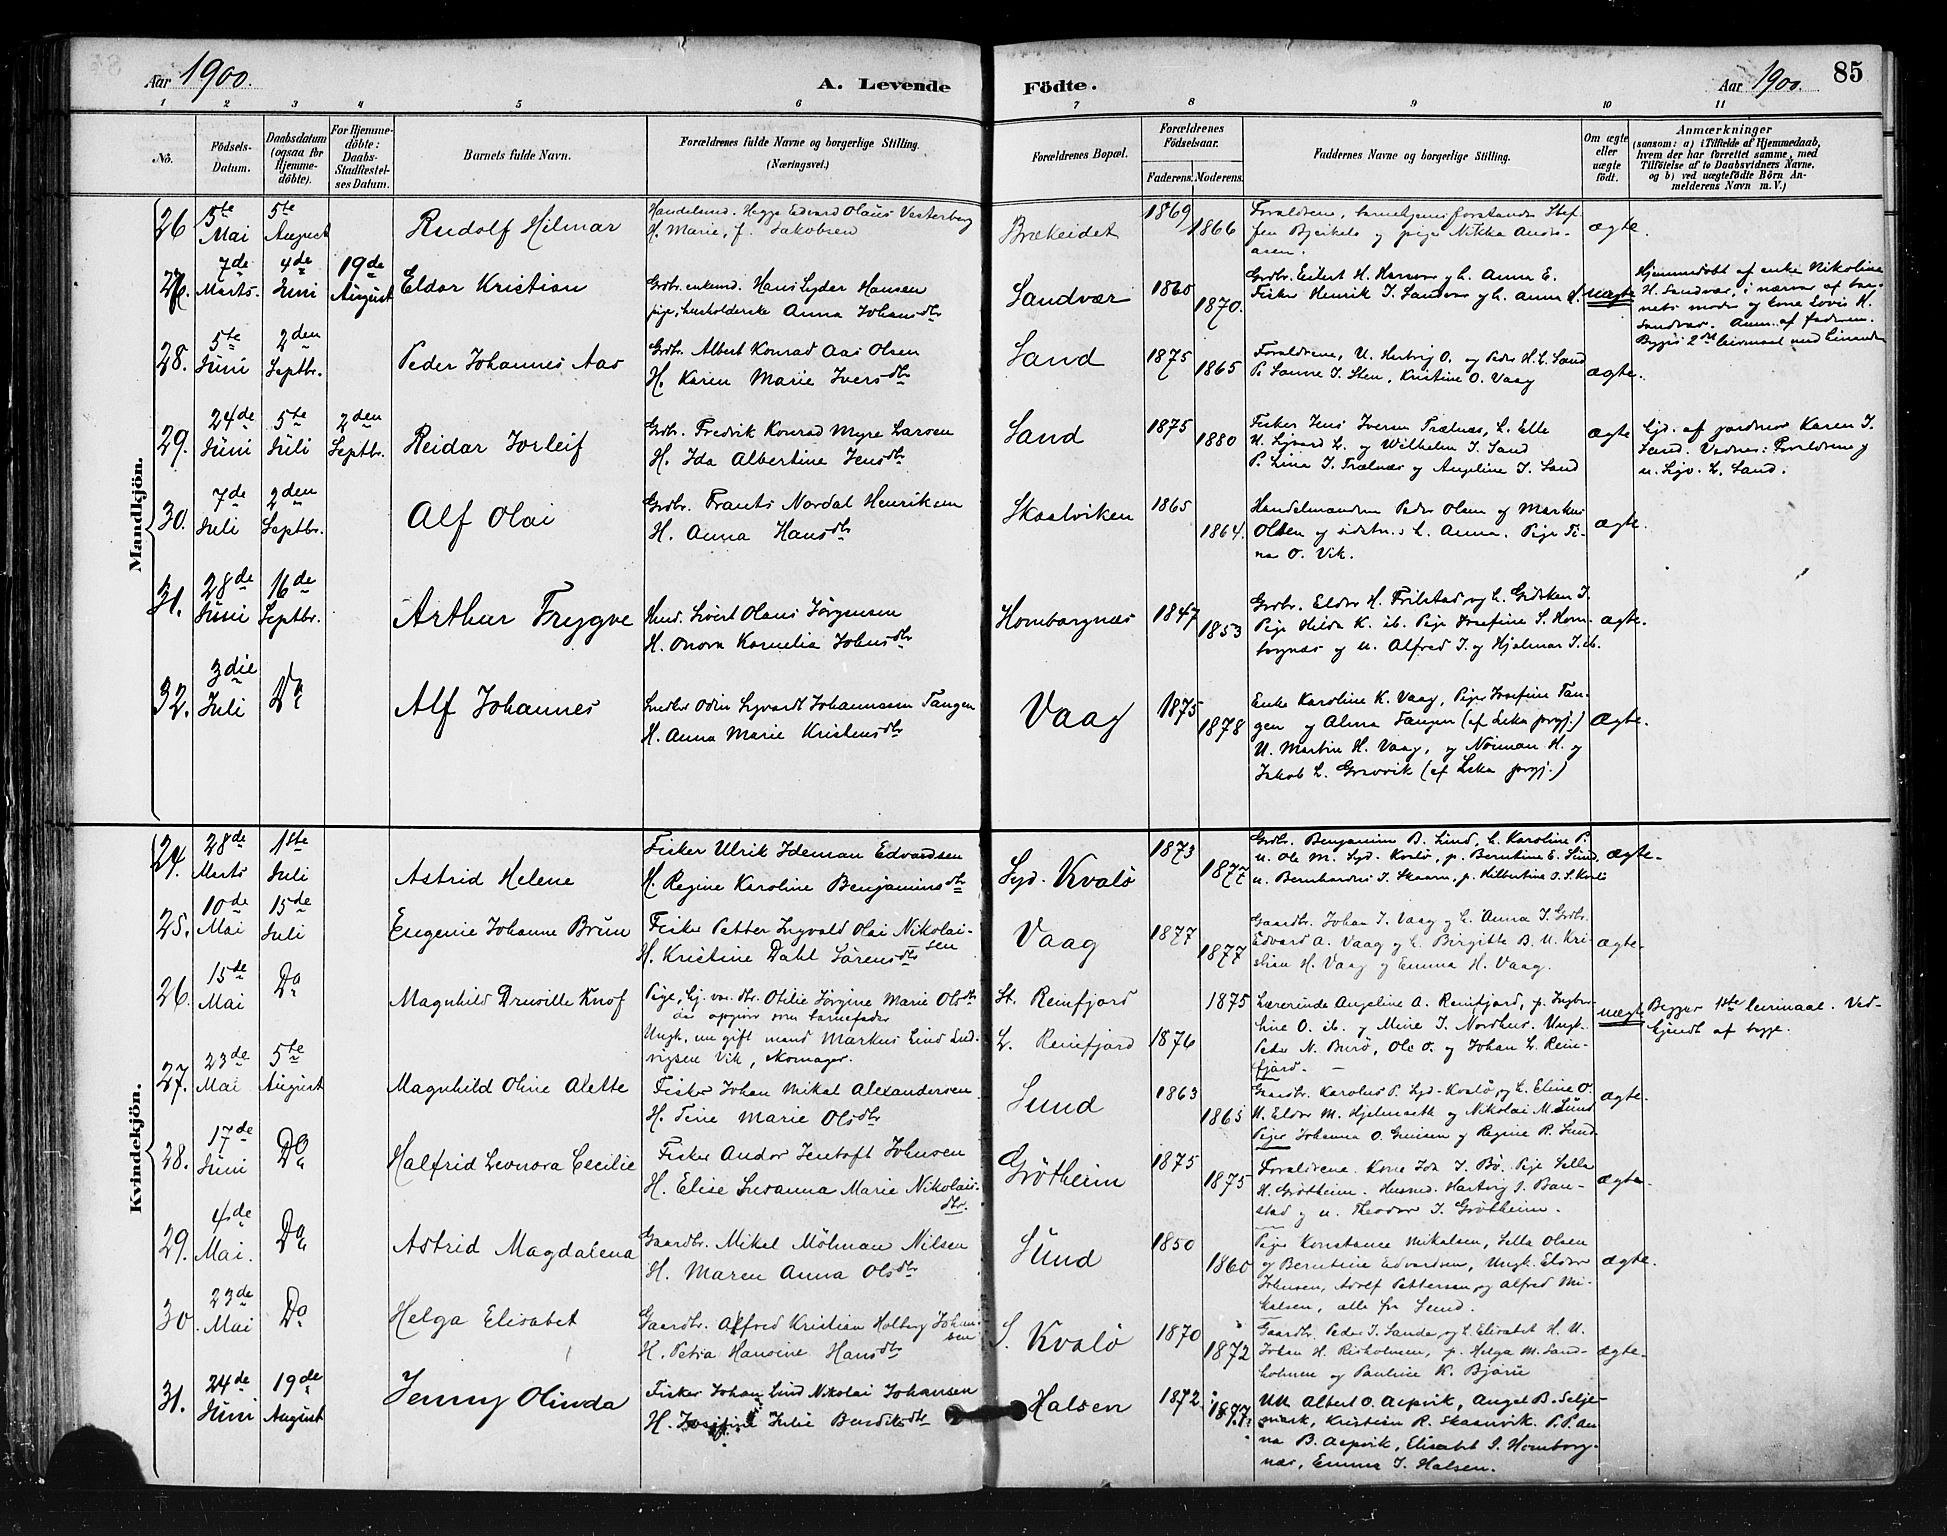 Aar 1900.
A. Levende
Födte.
Aar 1900.
85
1 2 3 4 5 6 7 8 9 10 11
No.
Födsels-
Datum.
Daabsdatum
(ogsaa for
Hjemme-
döbte).
For Hjemme-
döbte:
Daabs-
Stadfæstel-
ses Datum.
Barnets fulde Navn.
Forældrenes fulde Navne og borgerlige Stilling.
(Næringsvei.)
Forældrenes Bopæl.
Forældrenes
Födselsaar.
Faderens. Moderens.
Faddernes Navne og borgerlige Stilling.
Om ægte
eller
uægte
født.
Anmærkninger
(saasom: a) i Tilfælde af Hjemmedaab,
hvem der har forrettet samme, med
Tilföielse af to Daabsvidners Navne,
og b) ved uægtefödte Börn An-
melderens Navn m. V.)
Mandkjön.
26 5te Mai
5te August
Rudolf Hilmar
Handelsmd. Hegge Edvard Olaus Vesterberg
H. Marie, f. Jakobsen
Brækeidet
1869
1866
ægte.
27. 7de Marts.
4de Juni
19de August
Eldor Kristian
Grdbr. enkemd. Hans Lyder Hansen
pige, husholderske Anna Johansdtr
Sandvær
1865
1870.
Fisker Henrik J. Sandvær og h. Anna H.
uægte
Hjemmedøbt af enke Nikoline
H. Sandvær, i nærvær af bar-
nets moder og kone Lovis H.
Sandvær. Anm. af faderen.
Begges 2det leiermaal med hinanden
28. 5te Juni
2den Septbr.
Peder Johannes Aas
Grdbr. Albert Konrad Aas Olsen
H. Karen Marie Iversdtr
Sand
1875
1865
Forældrene, U. Hartvig O. og Peder H. L. Sand
P. Sanne J. Sten, Kristine O. Vaag
ægte.
29. 24de Juni
5te Juli
2den Septbr.
Reidar Torleif
Grdbr. Fredrik Konrad Myre Larsen
H. Ida Albertine Jensdtr
Sand
1875
1880
Fisker Jens Iversen Trælnes, h. Elle
U. Sigvard L. og Wilhelm J. Sand
P. Lina J. Trælnæs og Angeline J. Sand
ægte
Hjd. af jordmor Karen J.
Sand. Vidner: Forældrene og
u. Sigv. L. Sand.
30. 7de Juli
2den Septbr.
Alf Olai
Grdbr. Frants Nordal Henriksen
H. Anna Hansdtr
Skaalviken
1865
1864.
Handelsmændene Peder Olsen og Markus
Olsen og sidstn.s h. Anna. Pige Ti-
na O. Vik.
ægte.
31. 28de Juni
16de Septbr.
Arthur Trygve
Husmd. Sivert Olaus Jörgensen
H. Onora Kornelia Johnsdtr
Homborgnæs
1847
1853
Grdbr. Eldor H. Frilstad og h. Gidsken J.
Pige Hilda K. ib. Pige Josefine S. Hom-
borgnæs og u. Alfred J. og Hjalmar J. ib.
ægte.
32. 3die Juli
Do
Alf Johannes
Odin Sigvardt Johannessen Tangen
H. Anna Marie Kristensdtr
Vaag
1875
1878
Enke Karoline K. Vaag, Pige Josefine Tan-
gen og Alma Tangen (af Leka prgj.)
U. Martin H. Vaag, og Norman H. og
Jakob L. Gravvik (af Leka prgj.)
ægte.
Kvindekjön.
24. 28de Marts
1ste Juli
Astrid Helene
Fisker Ulrik Ideman Edvardsen
H. Regine Karoline Benjaminsdtr
Syd-Kvalö
1873
1877
Grdbr. Benjamin B. Sund, h. Karoline P.
u. Ole M. Syd-Kvalö, p. Berntine E. Sund,
u. Bernhardus J. Skaarn, p. Hilbertine O. S. Kvalö
ægte.
25. 10de Mai
15de Juli
Eugenie Johanne Brun
Fisker Petter Ingvald Olai Nikolai-
sen
H. Kristine Dahl Sörensdtr
Vaag
1877
1877
Gaardbr. Johan J. Vaag og h. Anna J. Grdbr.
Edvard A. Vaag og h. Birgitte B. U. Kri-
stian H. Vaag og Emma H. Vaag.
ægte.
26. 15de Mai
Do
Magnhild Drusille Knof
Pige, Otilie Jörgine Marie Olsdtr
der opgiver som barnefader
Ungk., nu gift mand Markus Lind Lud-
vigsen Vik, skomager.
St. Reinfjord
L. Reinfjord
1876
1875
Lærerinde Angeline A. Reinfjord, p. Ingbor-
hine O. ib. og Mine J. Nordhus. Ungk.
Peder N. Burö, Ole O. og Johan L. Rein-
fjord.
uægte
Begges 1ste leiermaal. Ved-
kjendt af begge.
27. 23de Mai
5te August
Magnhild Oline Alette
Fisker Johan Mikal Alexandersen
H. Tine Marie Olsdtr
Sund
1863
1865
Gaardbr. Karolus P. Syd-Kvalö, og h. Eline O.
U. Eldor M. Hjelmseth og Nikolai M. Sund
Piger Johanna O. og Regine R. Sund
ægte.
28. 17de Juni
Do
Halfrid Leonora Cecilie
Fisker Andor Jentoft Johnsen
H. Elise Susanna Marie Nikolais-
dtr.
Grötheim
1875
1875
Forældrene. Kone Ida J. Bö. Pige Sella
H. Grötheim. Husmd. Hartvig J. Ban-
stad og u. Theodor J. Grötheim.
ægte.
29. 4de Mai.
Do
Astrid Magdalena
Gaardbr. Mikal Mölman Nilsen
H. Maren Anna Olsdtr
Sund
1850
1860
Piger Konstance Mikalsen, Sella Olsen
og Berntine Edvardsen, Ungk. Eldor
Johnsen, Adolf Pettersen og Alfred Mi-
kalsen, alle fra Sund.
ægte.
30. 23de Mai
Do
Helga Elisabet
Gaardbr. Alfred Kristian Holberg Johan-
sen
H. Petra Hansine Hansdtr
S. Kvalö
1870
1872
Gaardbr. Peder J. Sande, og h. Elisabet H. U.
Johan H. Risholmen, p. Helga M. Sand-
holmen og Pauline K. Björu
ægte.
31. 24de Juni
19de August
Jenny Olinda
Fisker Johan Lind Nikolai Johansen
H. Josefine Julie Bendiksdtr
Halsen
1872
1877
UU. Albert O. Aspvik, Angel B. Selje-
mark, Kristian R. Skaanvik. P.P. An-
na B. Aspvik, Elisabet S. Homborg-
næs, Emma J. Halsen.